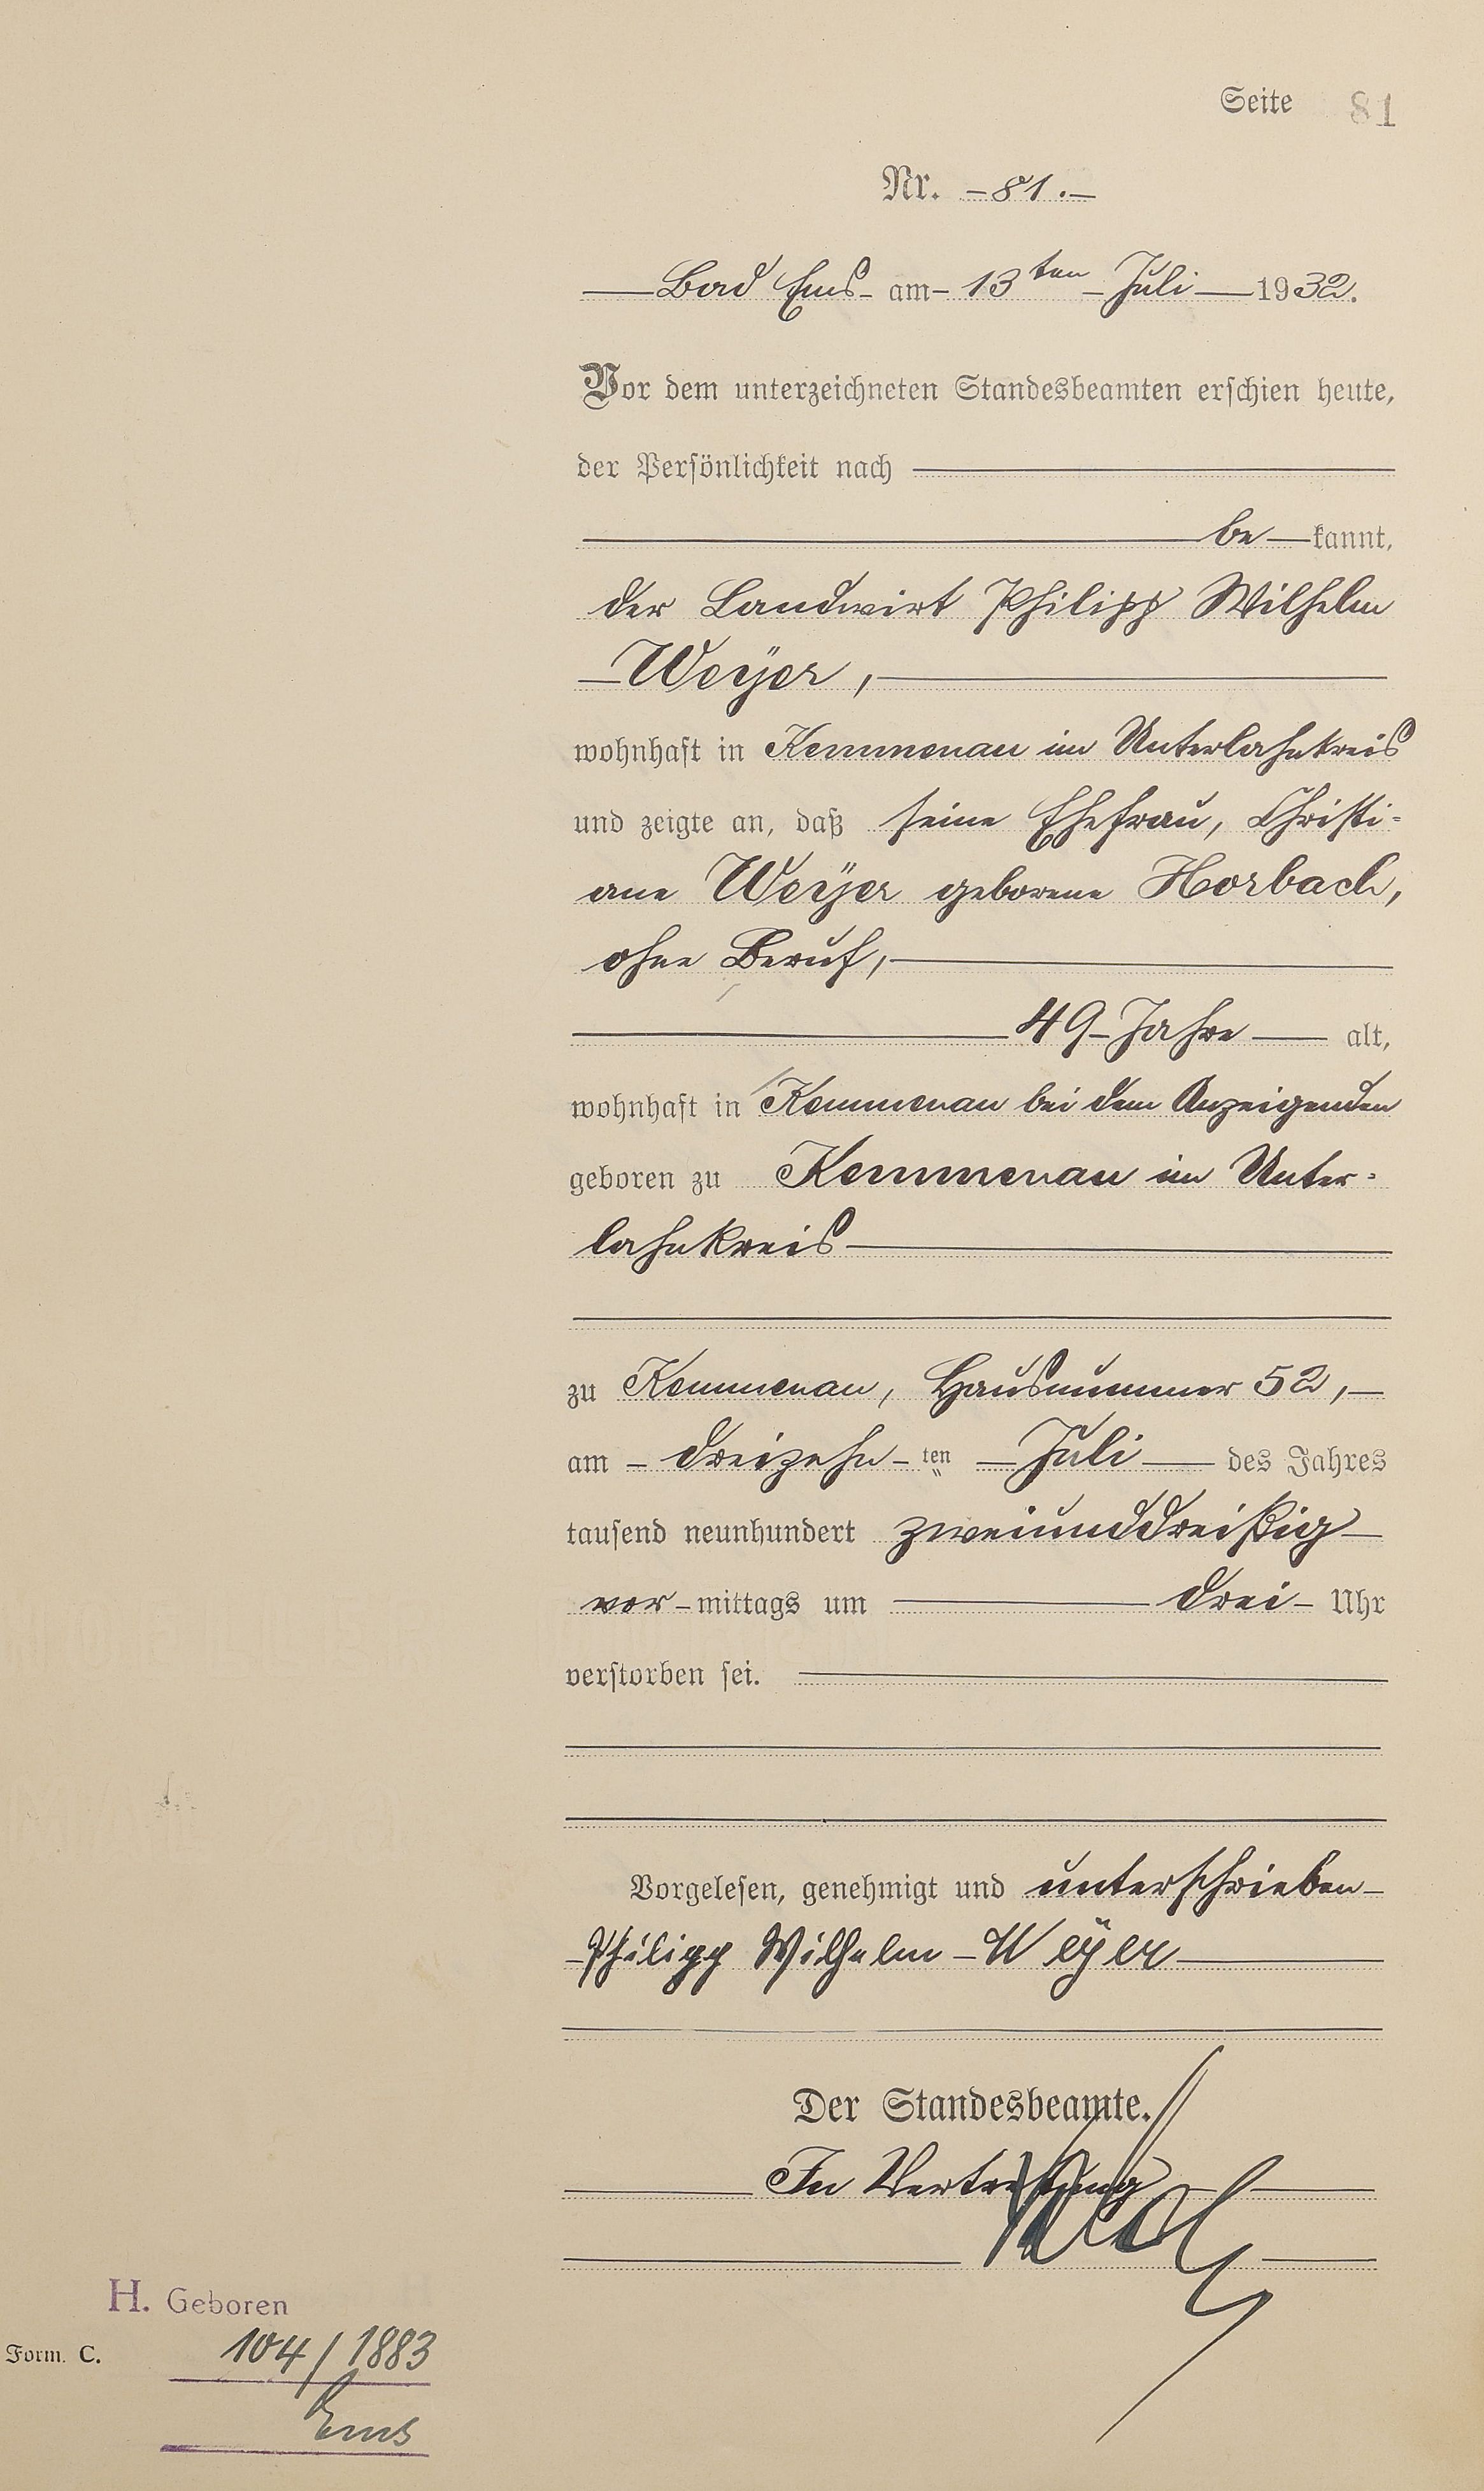 Seite 81
Nr. -81.-
Bad Ems am 13ten Juli 1932.
Vor dem unterzeichneten Standesbeamten erschien heute,
der Persönlichkeit nach
be kannt,
der Landwirt Philipp Wilhelm
Weÿer,
wohnhaft in Kemmenau im Unterlahnkreis
und zeigte an, daß seine Ehefrau, Christi-
ane Weÿer geborene Horbach,
ohne Beruf,
49 Jahre alt,
wohnhaft in Kemmenau bei dem Anzeigenden
geboren zu Kemmenau im Unter-
lahnkreis
zu Kemmenau, Hausnummer 52,
am dreizehn ten Juli des Jahres
tausend neunhundert zweiunddreißig
vor mittags um drei Uhr
verstorben sei.
Vorgelesen, genehmigt und unterschrieben
Philipp Wilhelm Weÿer
Der Standesbeamte.
In Vertretung
H. Geboren
Form. C. 104/1883
Ems